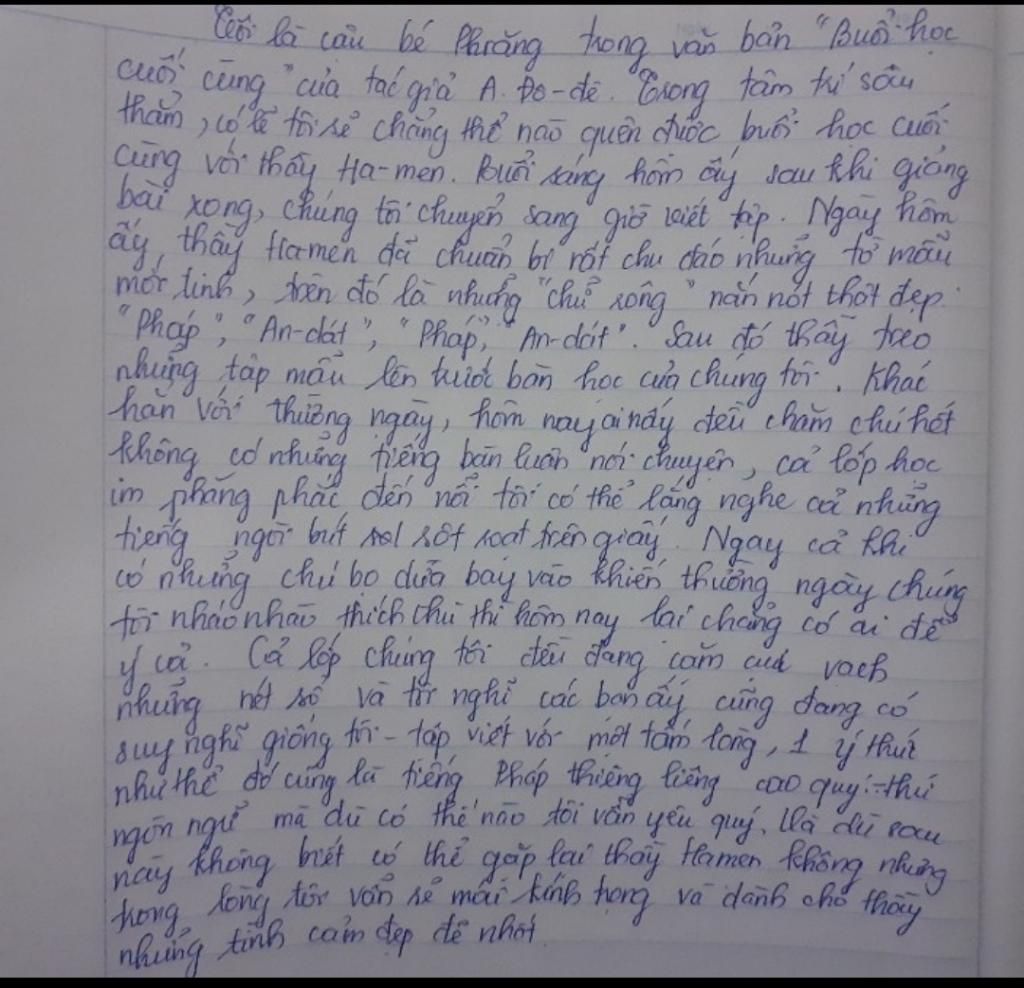 Tôi là cậu bé Phrăng trong văn bản "Buổi học
cuối cùng" của tác giả A. Đo-đê. Trong tâm trí sâu
thẳm, có lẽ tôi sẽ chẳng thể nào quên được buổi học cuối
cùng với thầy Ha-men. Buổi sáng hôm ấy sau khi giảng
bài xong, chúng tôi chuyển sang giờ viết tập. Ngày hôm
ấy, thầy Hamen đã chuẩn bị rất chu đáo những tờ mẫu
mới tinh, trên đó là những "chữ rông" nắn nót thật đẹp:
"Pháp", "An-dát", "Pháp", "An-dát". Sau đó thầy treo
những tập mẫu lên trước bàn học của chúng tôi. Khác
hẳn với thường ngày, hôm nay ai nấy đều chăm chú hết
không có những tiếng bàn luận nói chuyện, cả lớp học
im phăng phắc đến nỗi tôi có thể lắng nghe cả những
tiếng ngòi bút sột soạt trên giấy. Ngay cả khi
có những chú bọ dừa bay vào khiến thường ngày chúng
tôi nháo nhào thích thú thì hôm nay lại chẳng có ai để
ý cả. Cả lớp chúng tôi đều đang cặm cụi vạch
những nét sổ và tôi nghĩ các bạn ấy cũng đang có
suy nghĩ giống tôi - tập viết với một tấm lòng, 1 ý thức
như thể đó cũng là tiếng Pháp thiêng liêng cao quý: thứ
ngôn ngữ mà dù có thế nào tôi vẫn yêu quý. Và dù sau
này không biết có thể gặp lại thầy Hamen không nhưng
trong lòng tôi vẫn sẽ mãi kính trọng và dành cho thầy
những tình cảm đẹp đẽ nhất